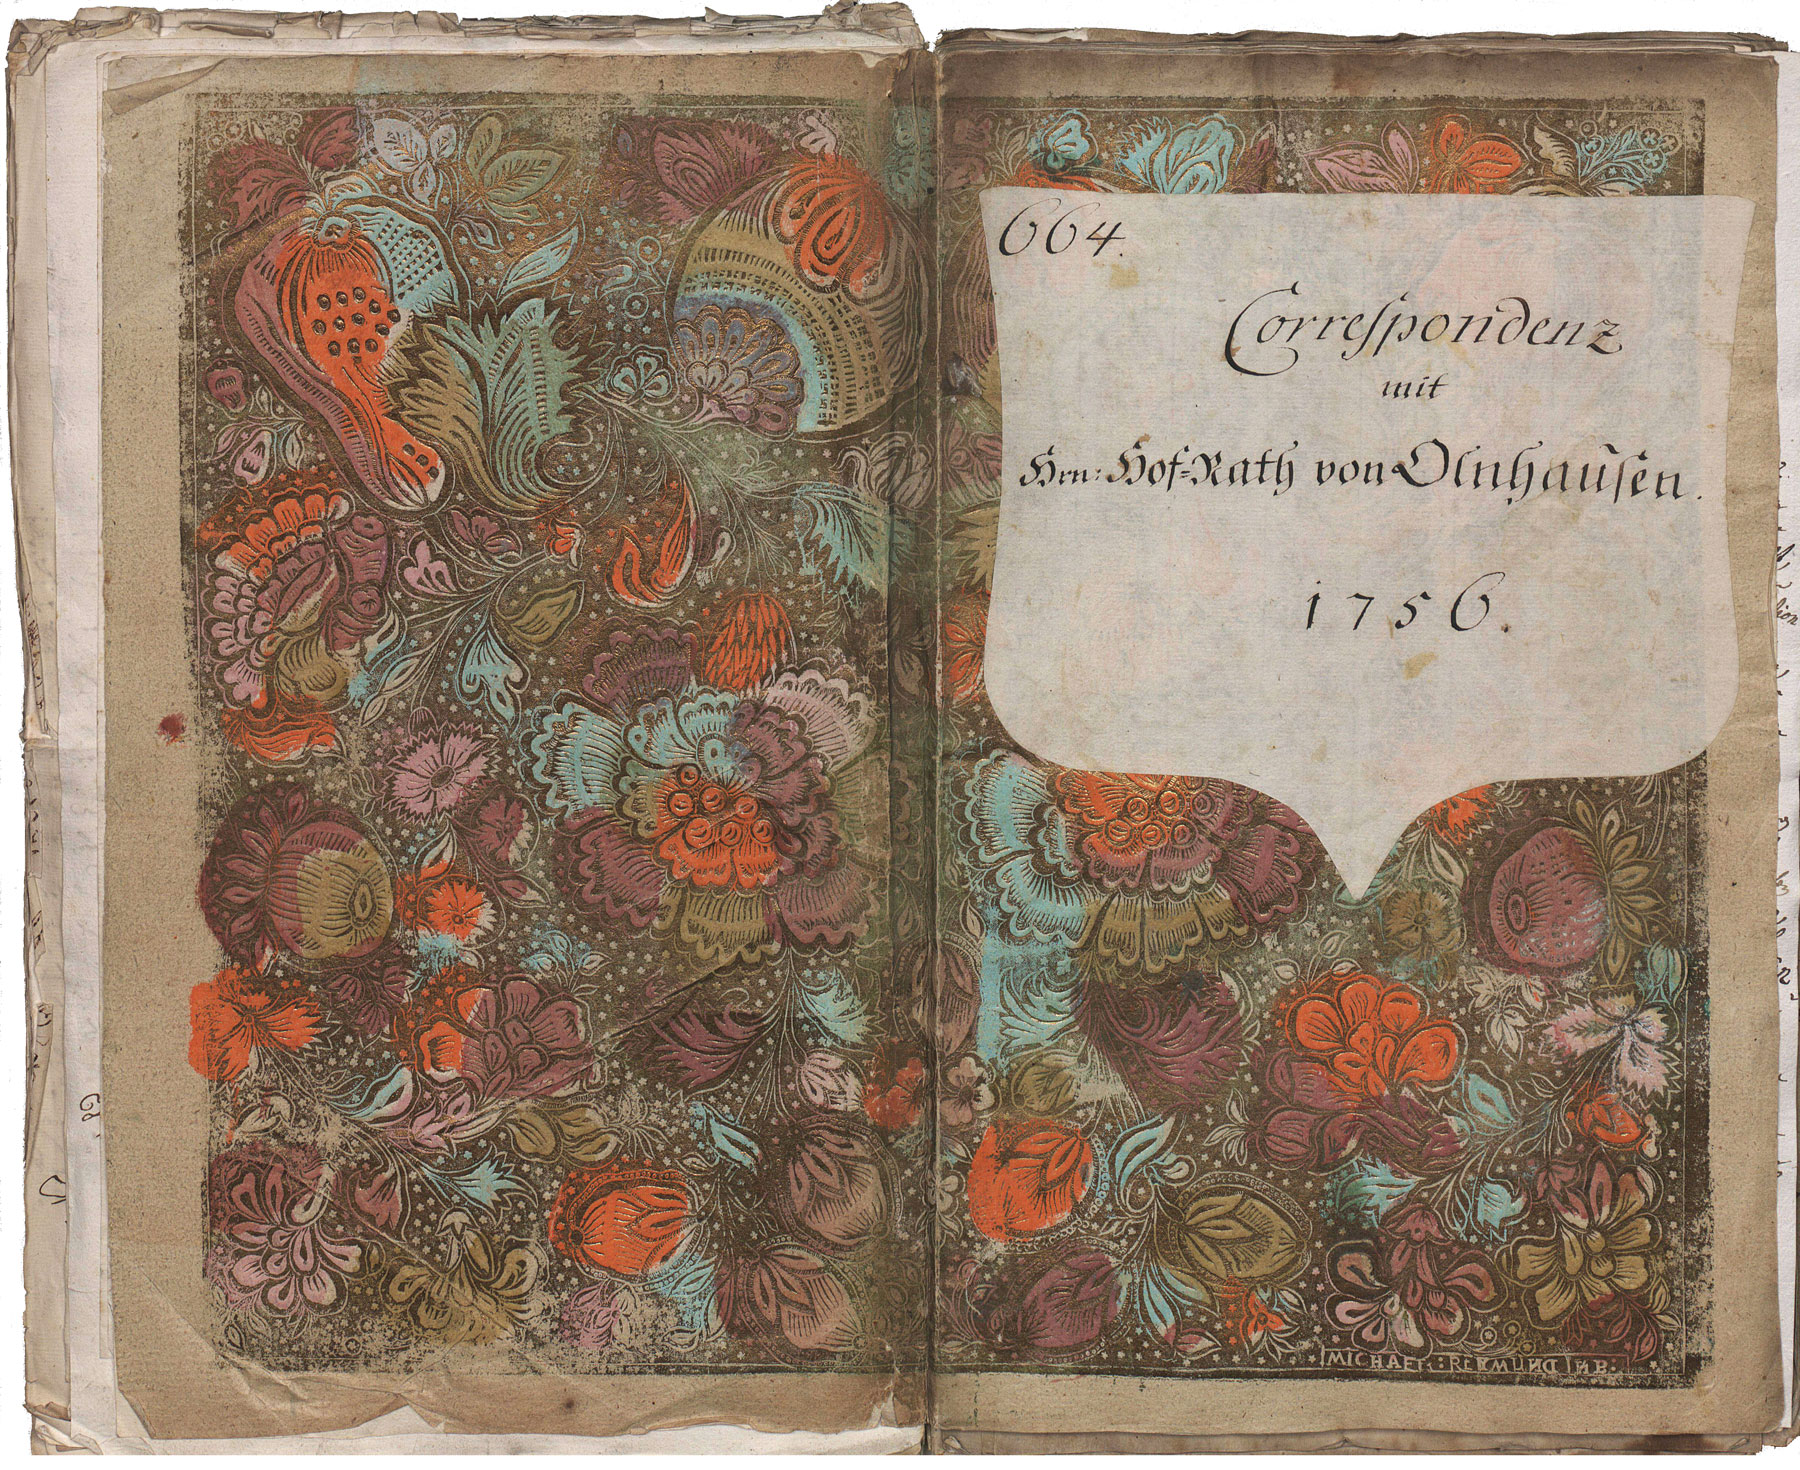 664.
Correspondenz
mit
Hrn: Hof=Rath von Olnhausen.
1756.
MICHAEL: REÜMUND IN B: